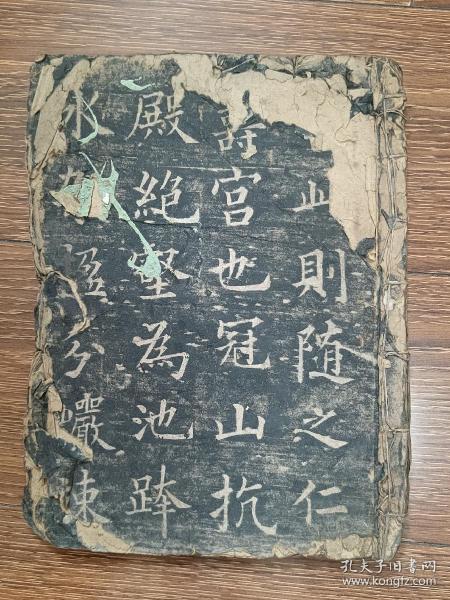 此則隨之仁
壽宮也冠山抗
殿絕壑為池跨
水架楹分巖竦
孔夫子旧书网
www.kongfz.com